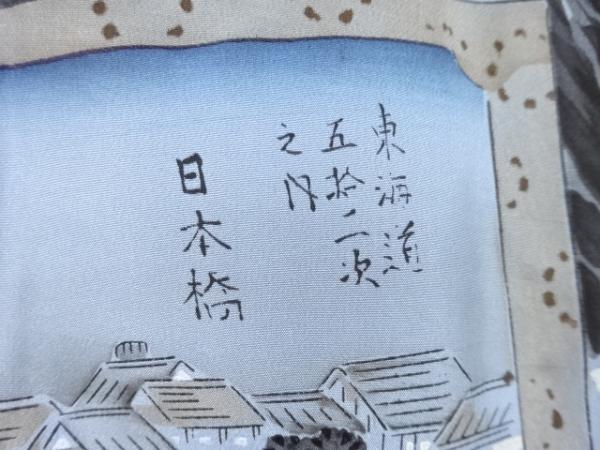 東海道
五拾三次
之内
日本橋